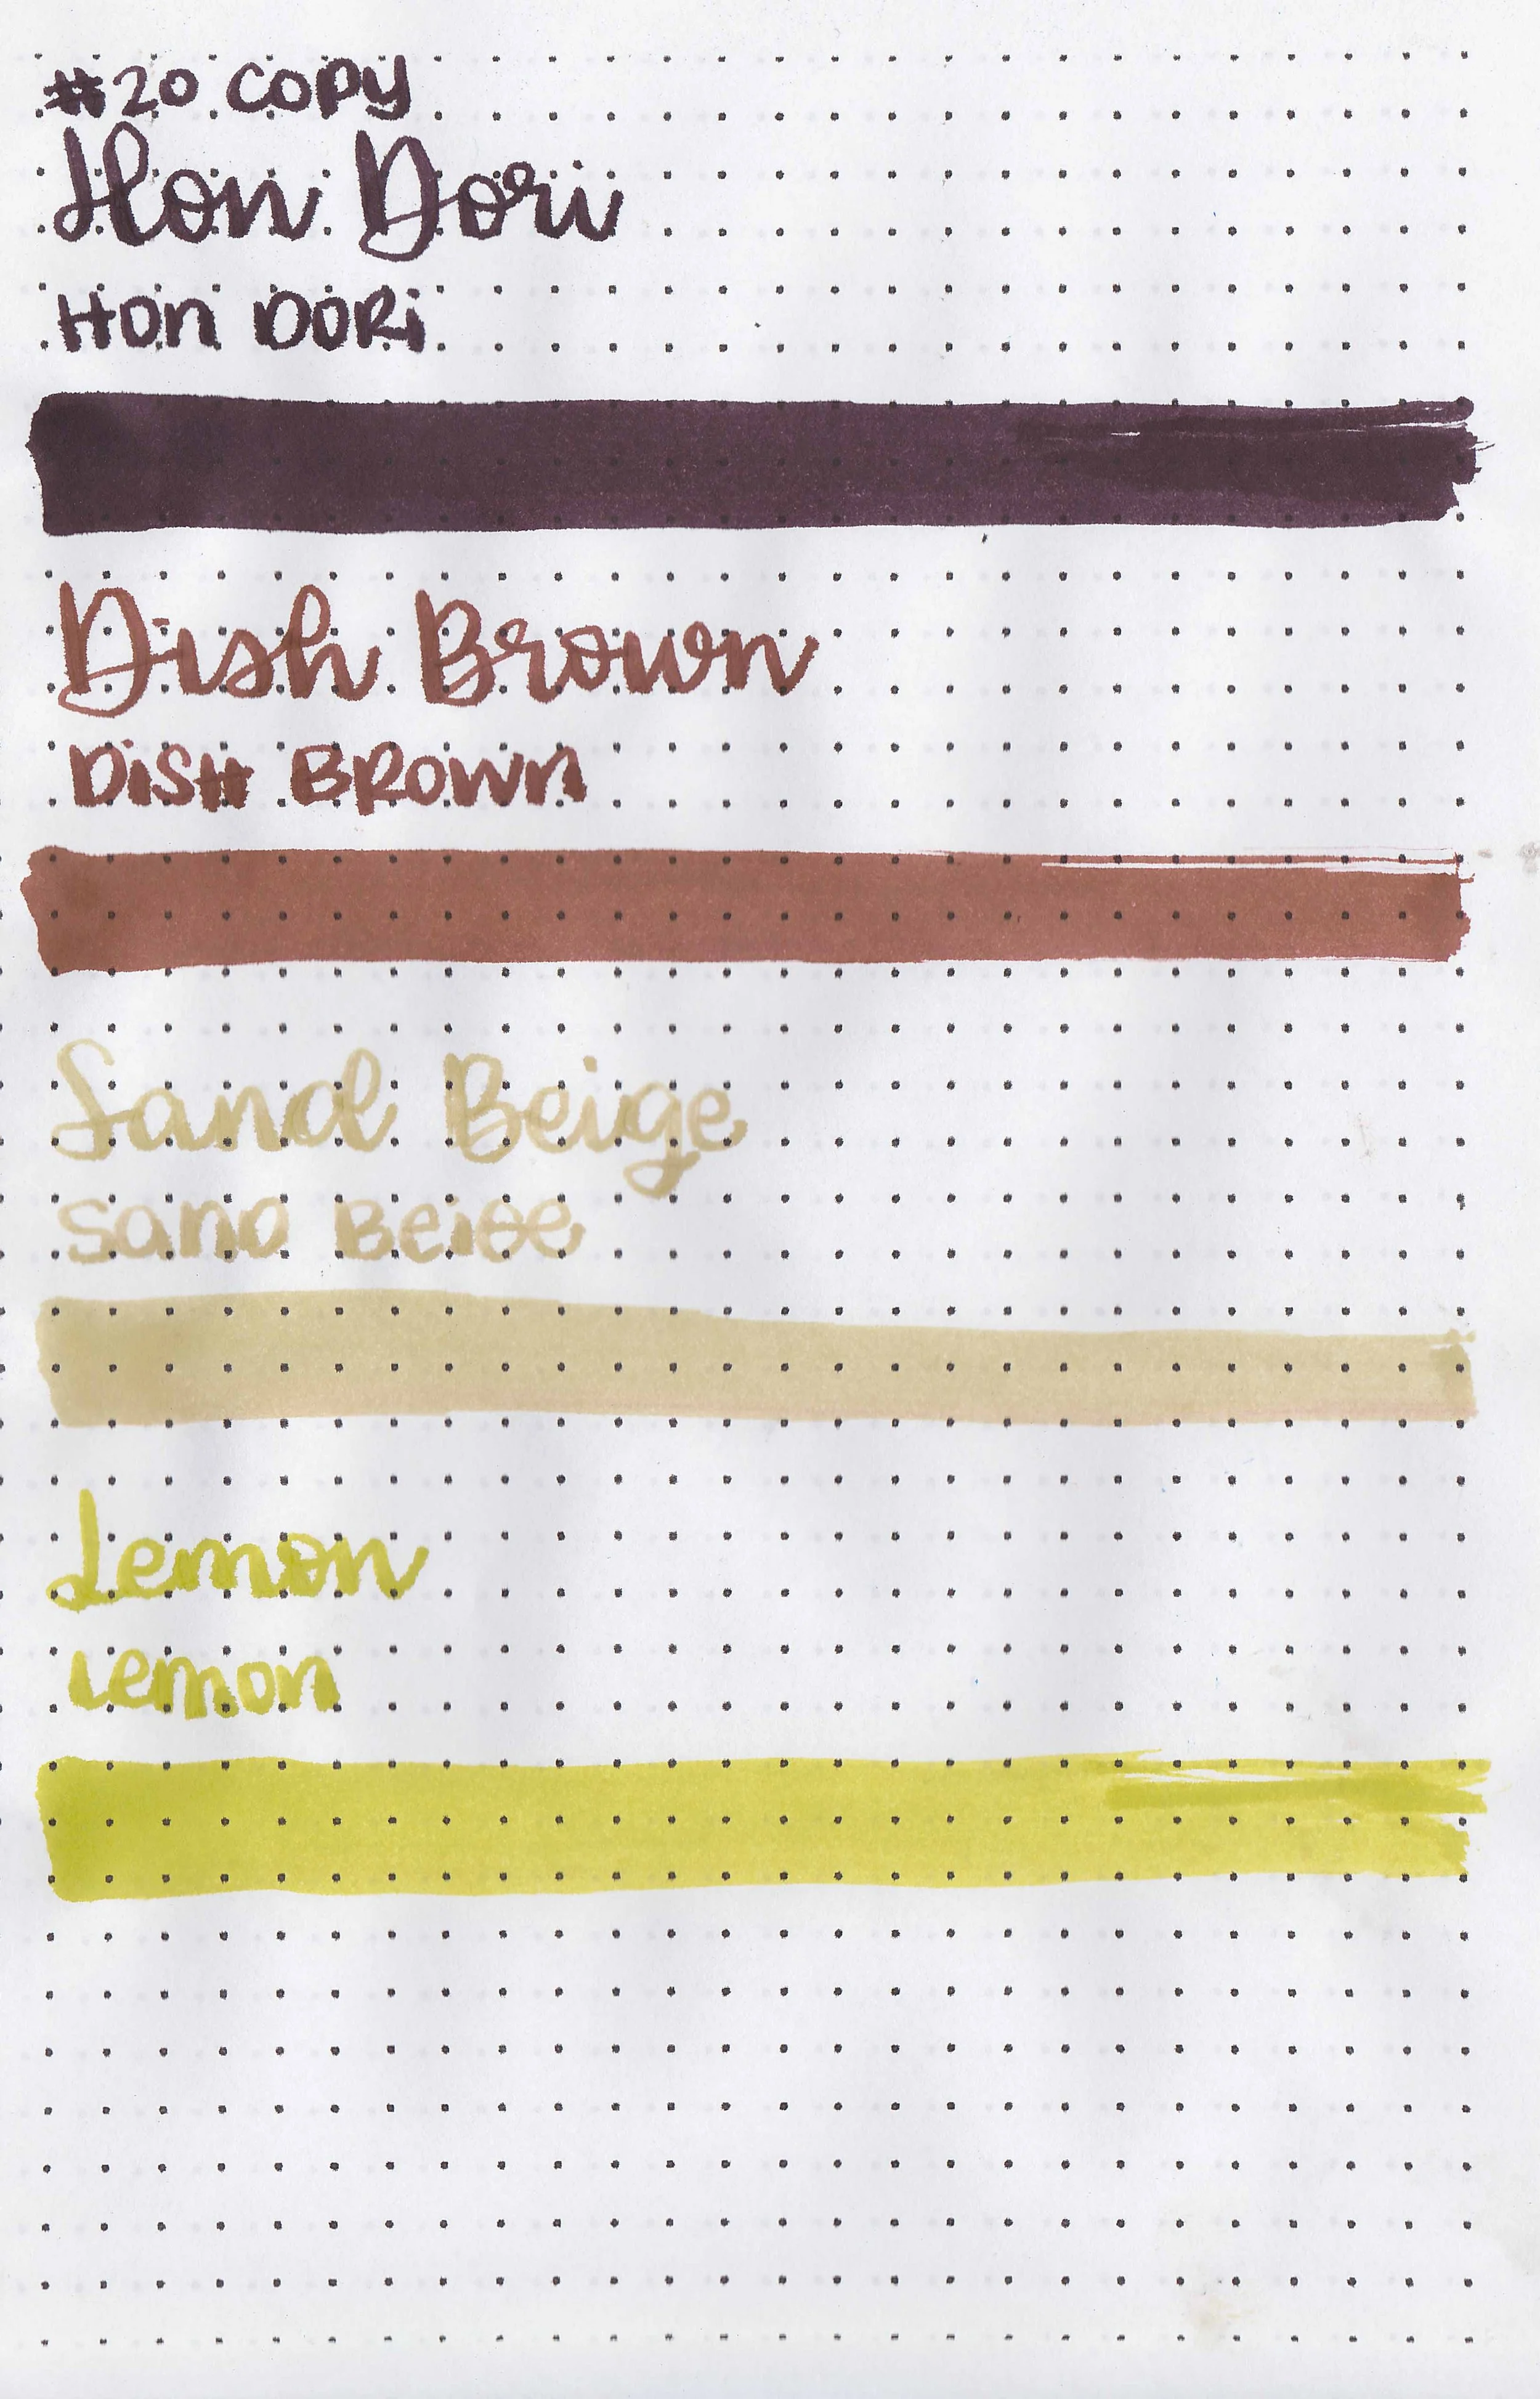 #20 COPY
Hon Dori
HON DORi
Dish Brown
DiSH BROWN
Sand Beige
SAND BEIGE
Lemon
Lemon